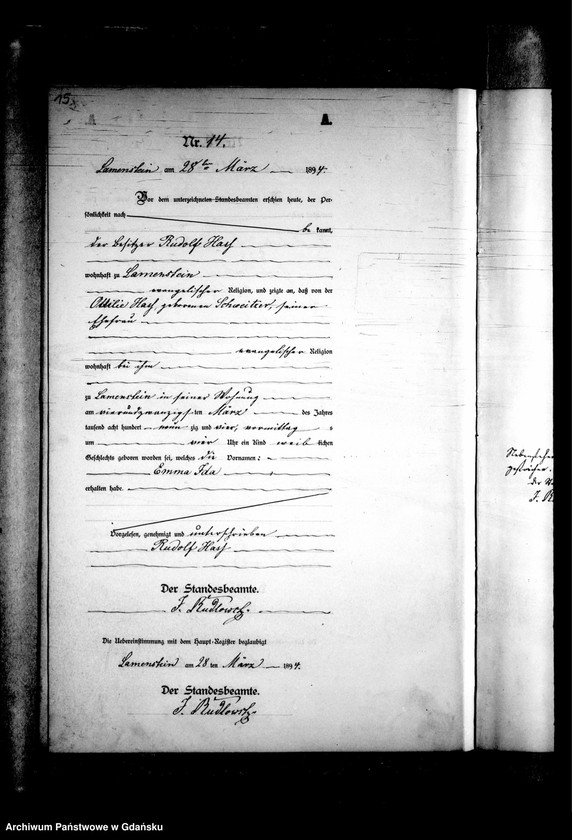 15.
A.
Nr. 14.
Lamenstein am 28ten März 1894.
Vor dem unterzeichneten Standesbeamten erschien heute, der Per-
sönlichkeit nach
be kannt,
der Besitzer Rudolf
wohnhaft zu Lamenstein
evangelischer Religion, und zeigte an, daß von der
Ottilie geborenen seiner
Ehefrau
evangelischer Religion
wohnhaft bei ihm
zu Lamenstein in seiner Wohnung
am vierundzwanzigsten März des Jahres
tausend acht hundert neun zig und vier, vormittag s
um vier Uhr ein Kind weib lichen
Geschlechts geboren worden sei, welches die Vornamen:
Emma Ida
erhalten habe.
Vorgelesen, genehmigt und unterschrieben
Rudolf
Der Standesbeamte.
J.
Die Uebereinstimmung mit dem Haupt-Register beglaubigt
Lamenstein am 28 ten März 1894.
Der Standesbeamte.
J.
Archiwum Państwowe w Gdańsku